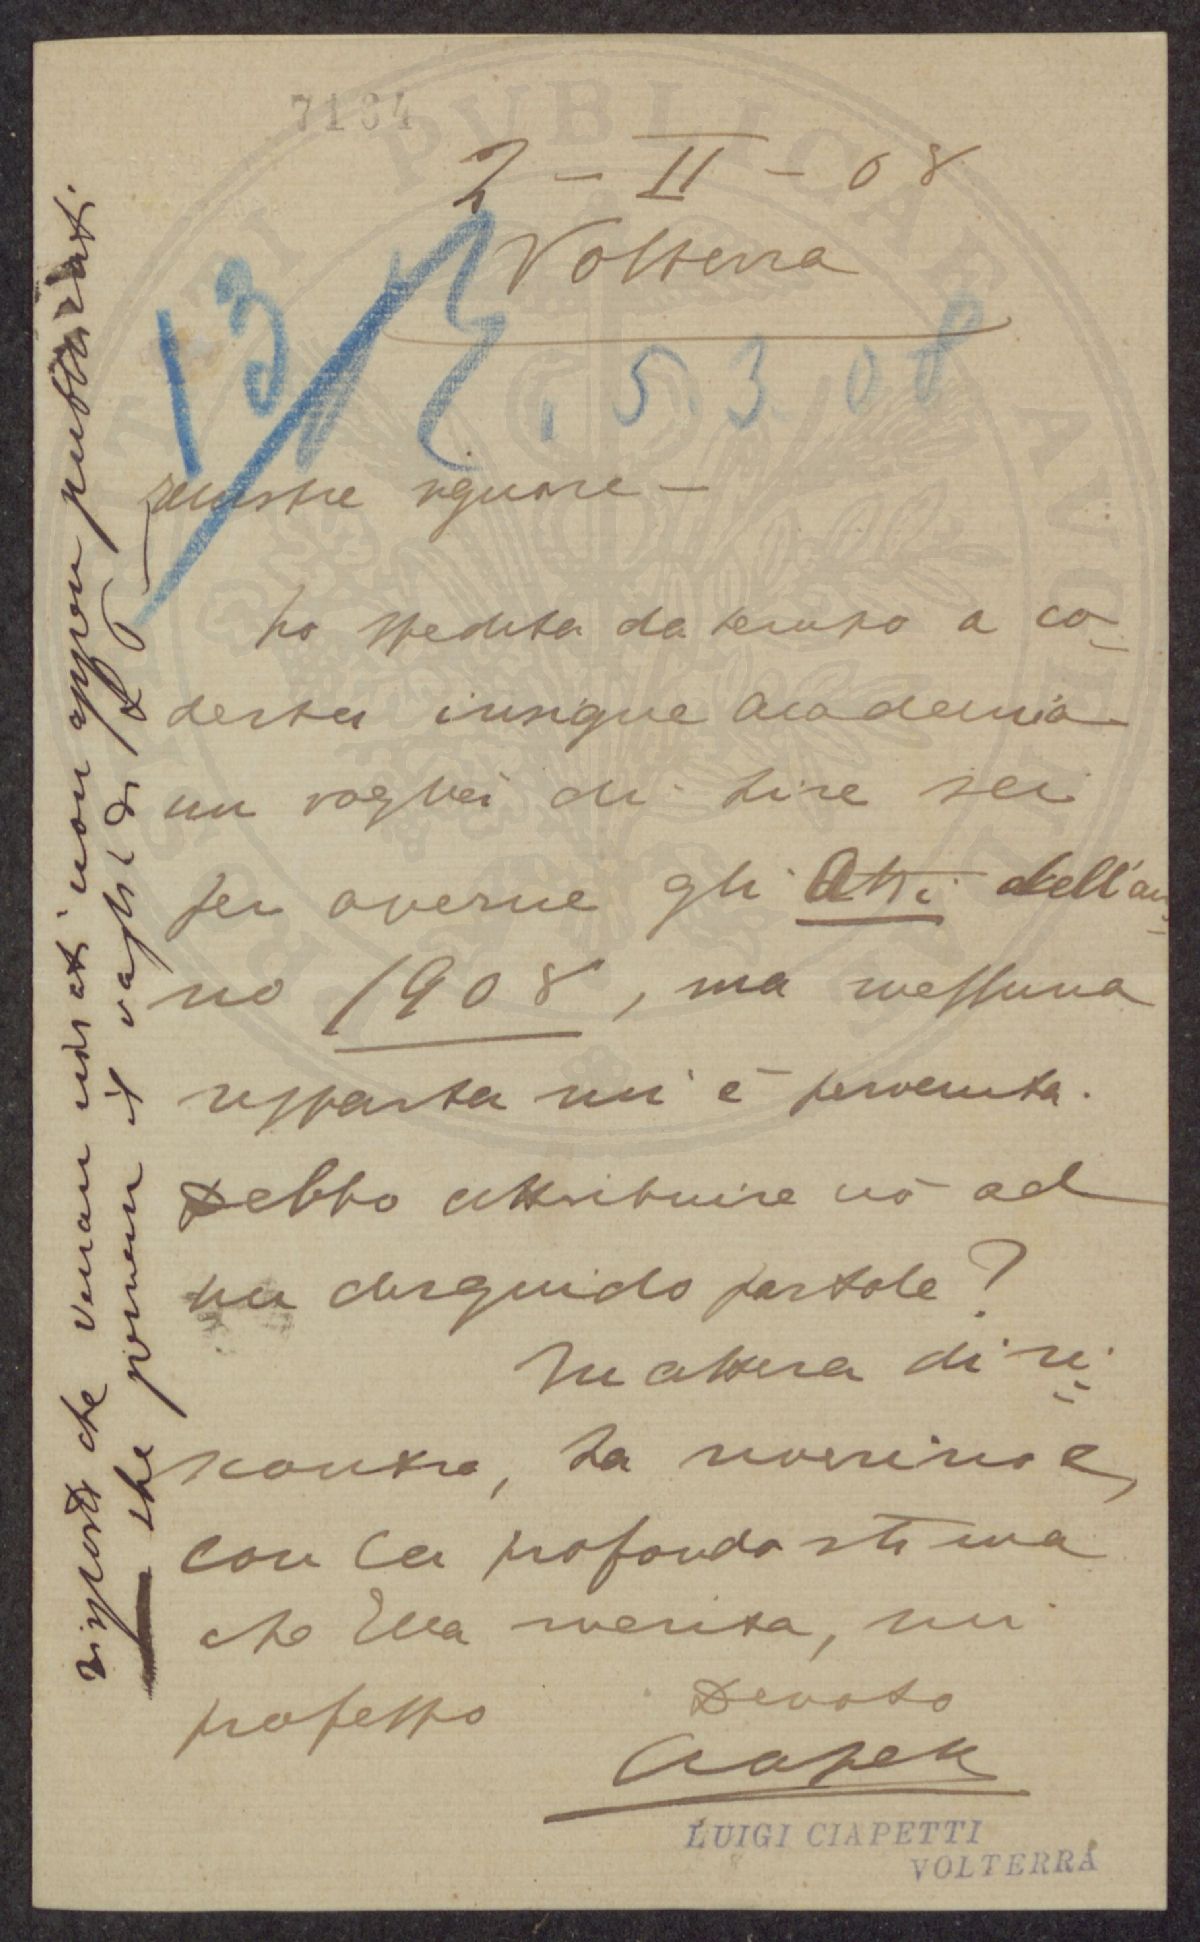 7184
2 - II - 08
Volterra
13
. 5. 3. 08
Illustre signore -
ho spedita da tempo a co-
desta insigne Academia
un vaglia di lire sei
per averne gli Atti dell'an-
no 1908, ma nessuna
risposta mi è pervenuta.
Debbo attribuire ciò ad
un disguido postale?
In attesa di ri-
scontro, La riverisco e,
con la profonda stima
che Ella merita, mi
professo Devoto
Ciapetti
LUIGI CIAPETTI
VOLTERRA
risposto che verran inviati non appena pubblicati
che pervenne il vaglia di